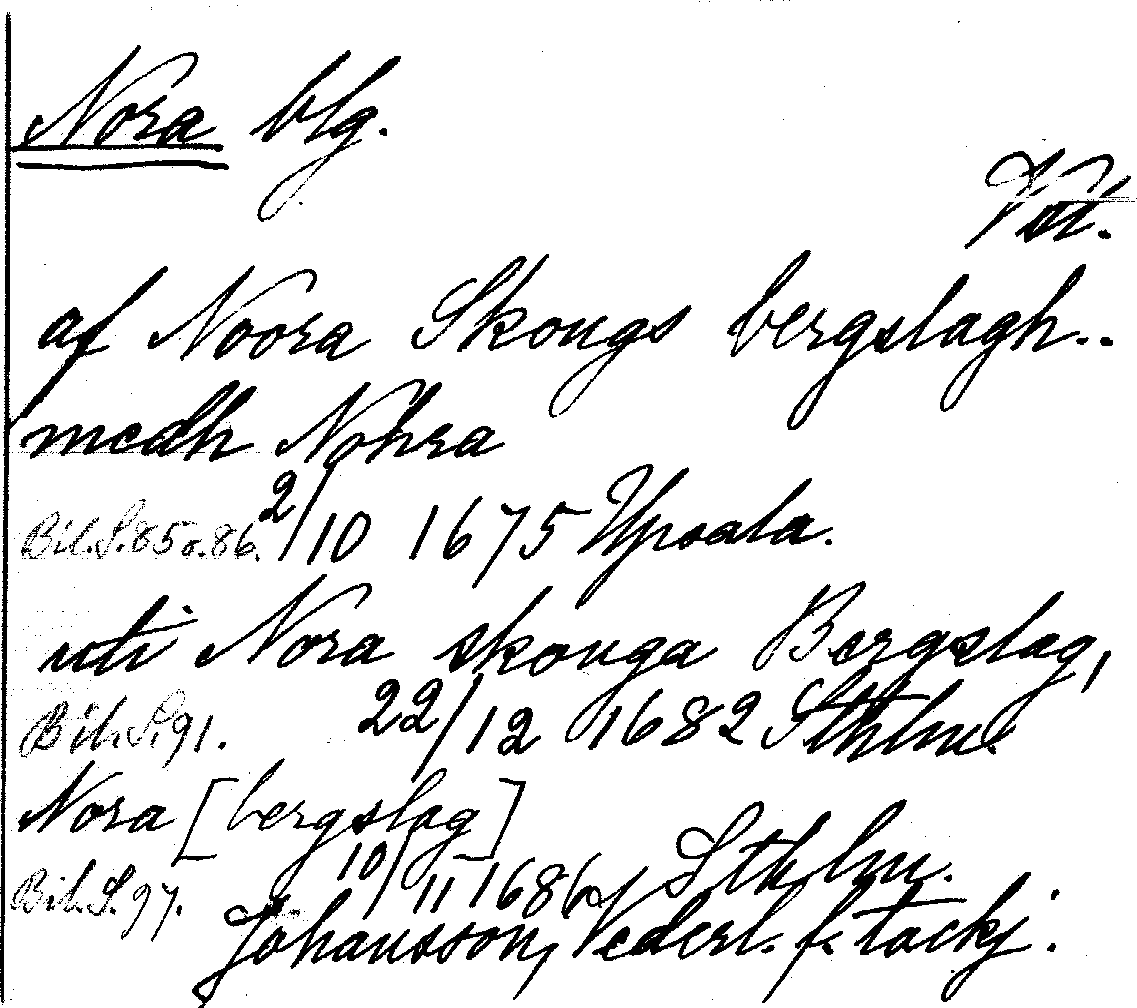 Nora blg.
Vstl.
af Noora Skougs bergslagh..
medh Nohra
Bil. S. 85 o. 86. 2/10 1675 Upsala.
uti Nora skouga Bergslag,
Bil. S. 91. 22/12 1682 Sthlm.
Nora [bergslag]
Bil. S. 97. 10/11 1686 Sthlm.
Johansson, Nederl. f. tackj.